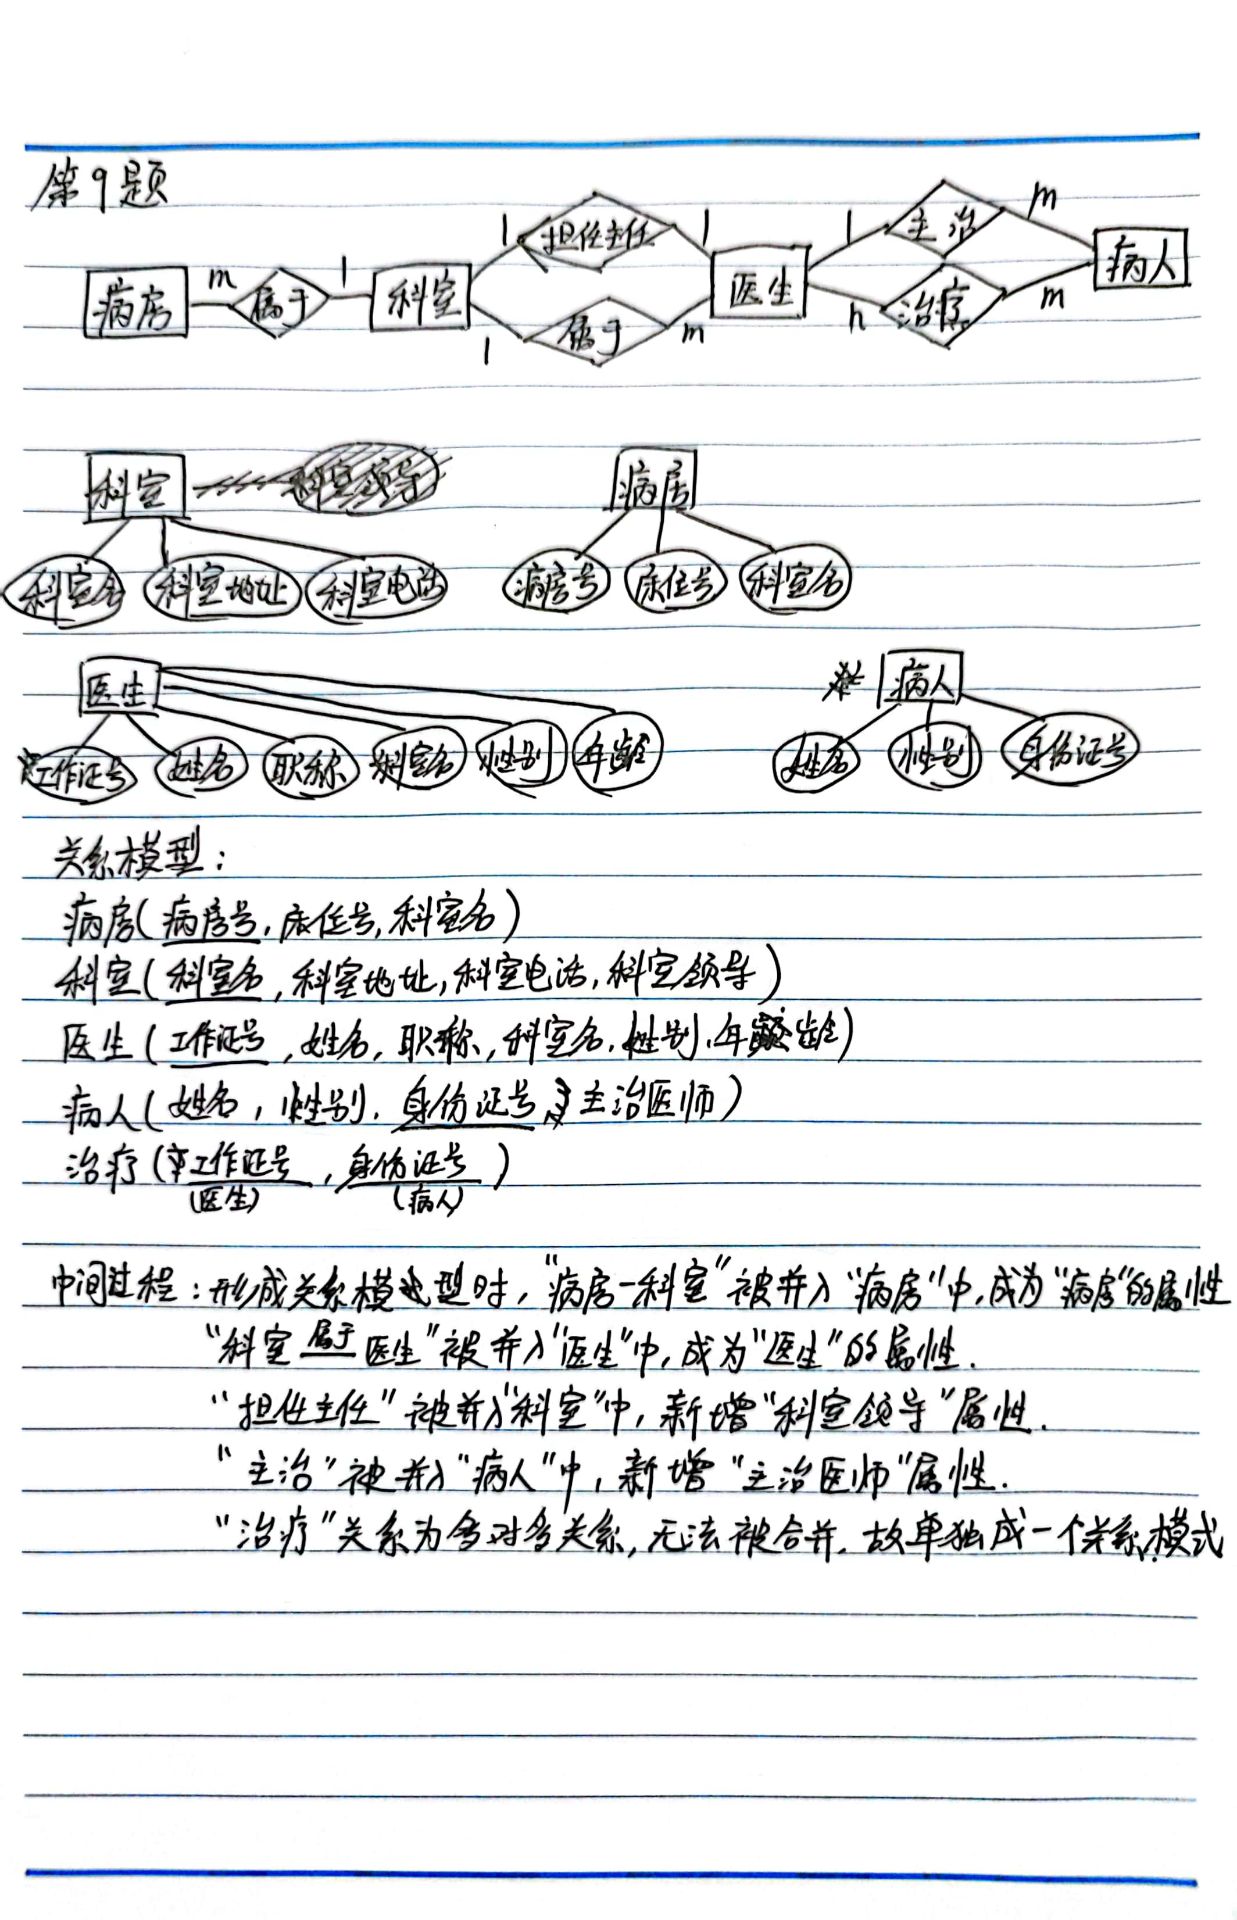 第9题
担任主任
主治
1 1 1 m
病房 m 属于 1 科室 医生 病人
1 属于 m n 治疗 m
科室 科室领导 病房
科室名 科室地址 科室电话 病房号 床位号 科室名
医生 病人
工作证号 姓名 职称 科室名 性别 年龄 姓名 性别 身份证号
关系模型:
病房(病房号,床位号,科室名)
科室(科室名,科室地址,科室电话,科室领导)
医生(工作证号,姓名,职称,科室名,性别,年龄)
病人(姓名,性别,身份证号,主治医师)
治疗(工作证号,身份证号)
(医生) (病人)
中间过程:形成关系模型时,"病房-科室"被并入"病房"中,成为"病房"的属性
"科室属于医生"被并入"医生"中,成为"医生"的属性.
"担任主任"被并入"科室"中,新增"科室领导"属性.
"主治"被并入"病人"中,新增"主治医师"属性.
"治疗"关系为多对多关系,无法被合并.故单独成一个关系模式